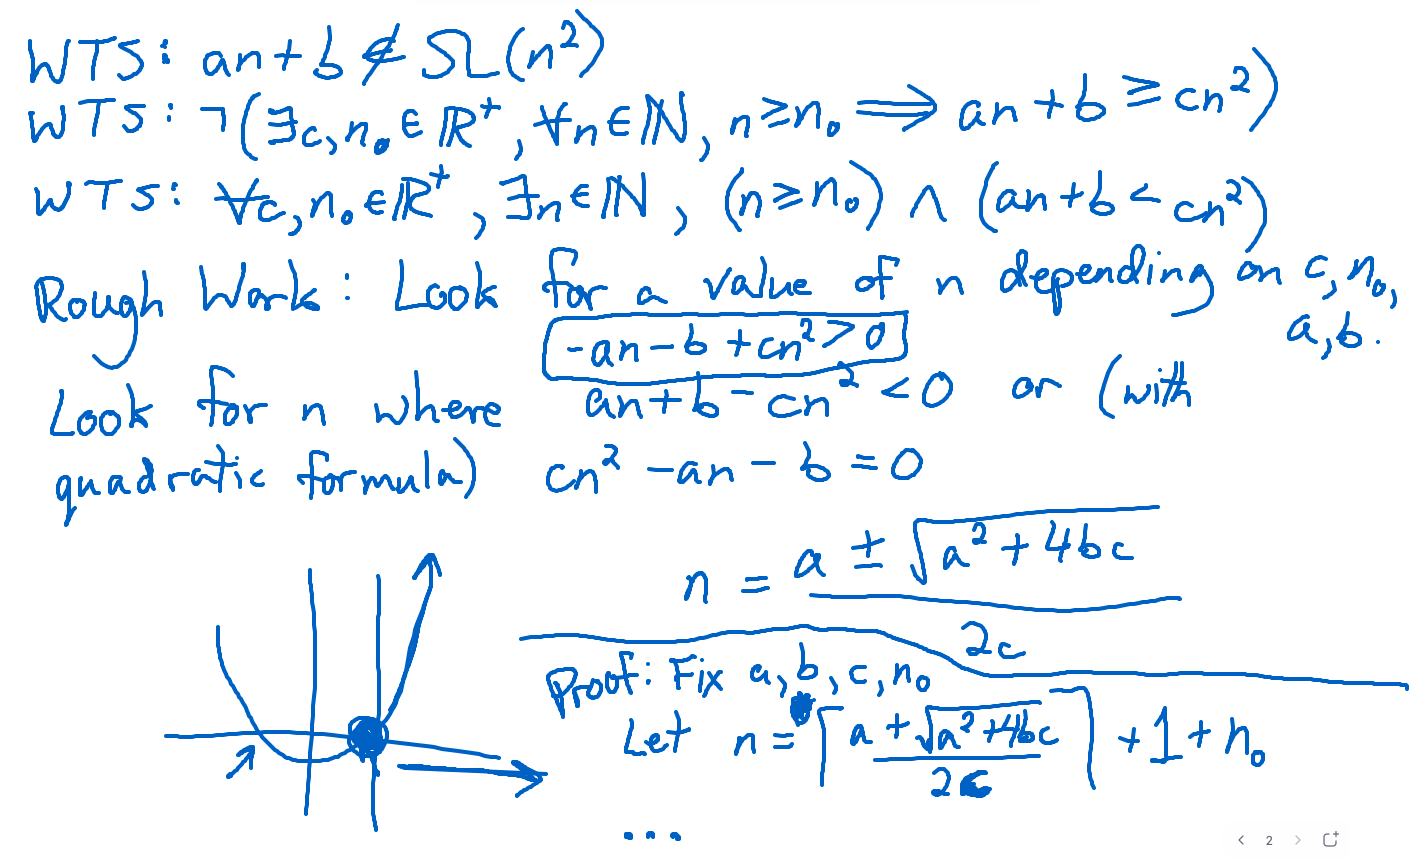 WTS: an+b ∉ Ω(n²)
WTS: ¬(∃c,n₀∈ℝ⁺, ∀n∈ℕ, n≥n₀ ⟹ an+b ≥ cn²)
WTS: ∀c,n₀∈ℝ⁺, ∃n∈ℕ, (n≥n₀) ∧ (an+b < cn²)
Rough Work: Look for a value of n depending on c, n₀,
a, b.
-an-b+cn²>0
Look for n where an+b-cn² <0 or (with
quadratic formula) cn² -an - b = 0
n = (a ± √(a²+4bc)) / 2c
Proof: Fix a, b, c, n₀
Let n = ⌈(a+√(a²+4bc)) / 2c⌉ +1+n₀
...
2